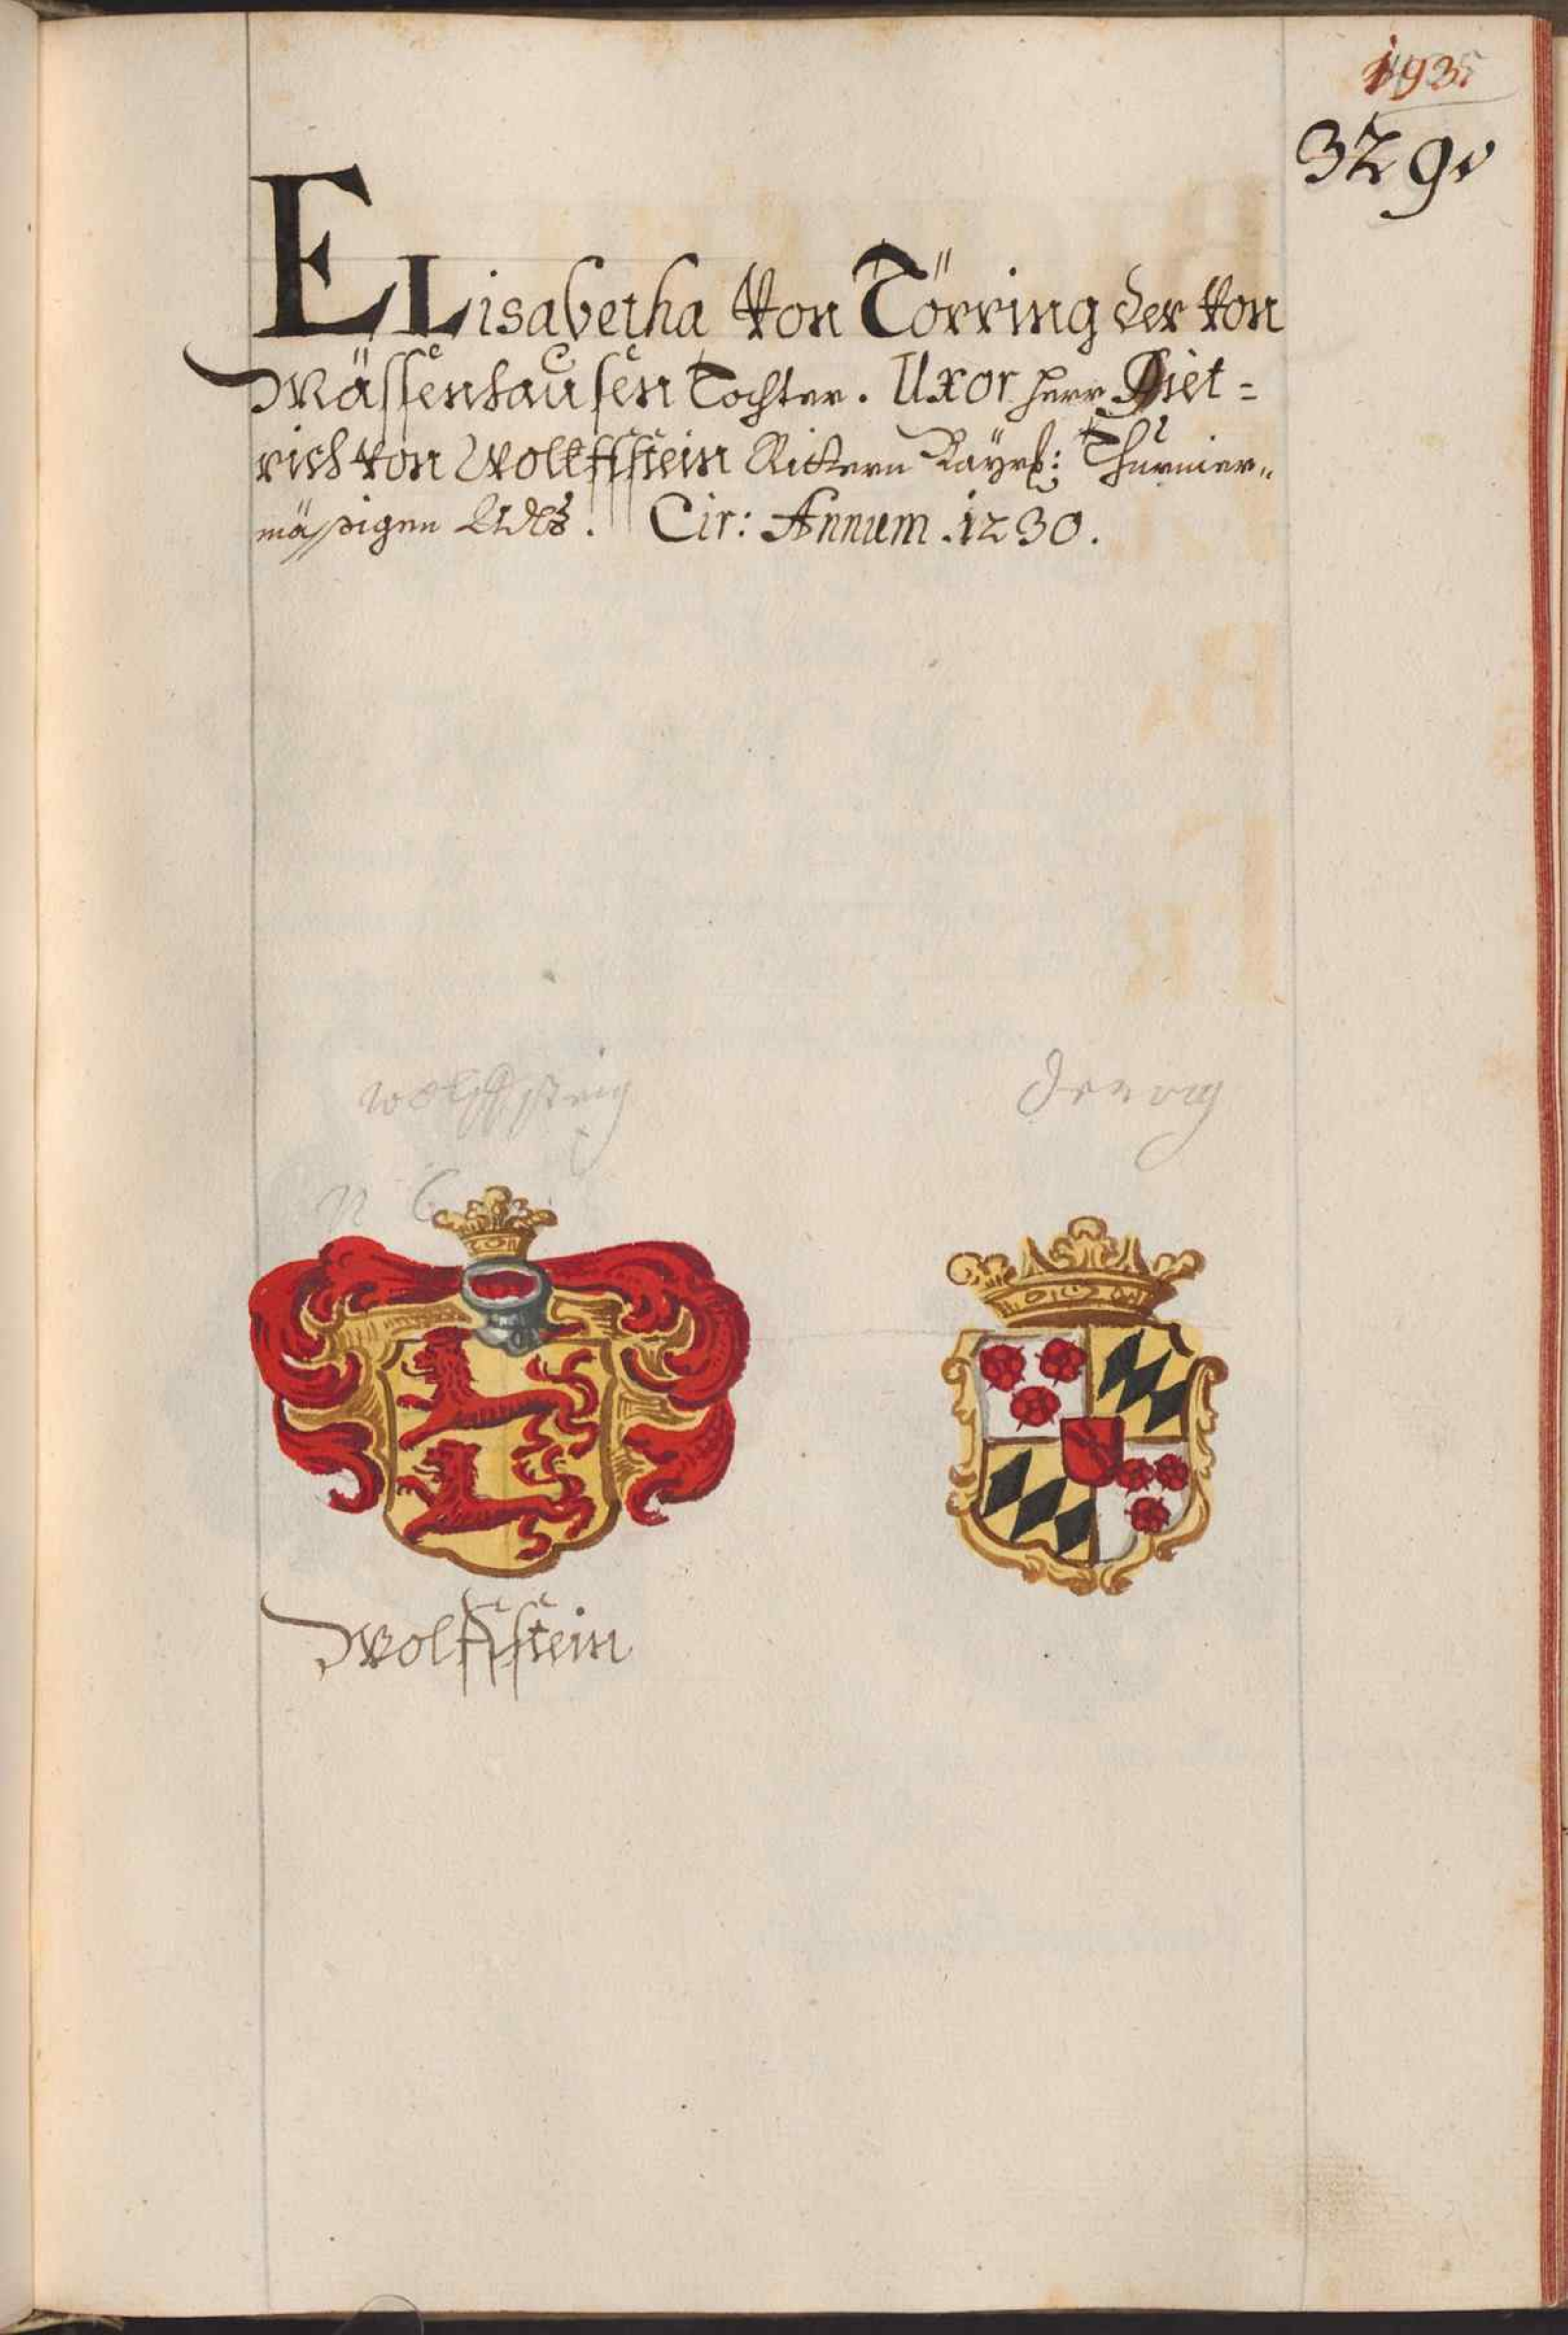 1935
329v
ELisabetha Von Törring der Von
Mässenhausen Tochter. Uxor Herr Diet=
rich Von Wolffstein Rittern Bayrl: Thurnier„
mässigen Adls. Cir: Annum .1230.
wolffstein
Wolffstein